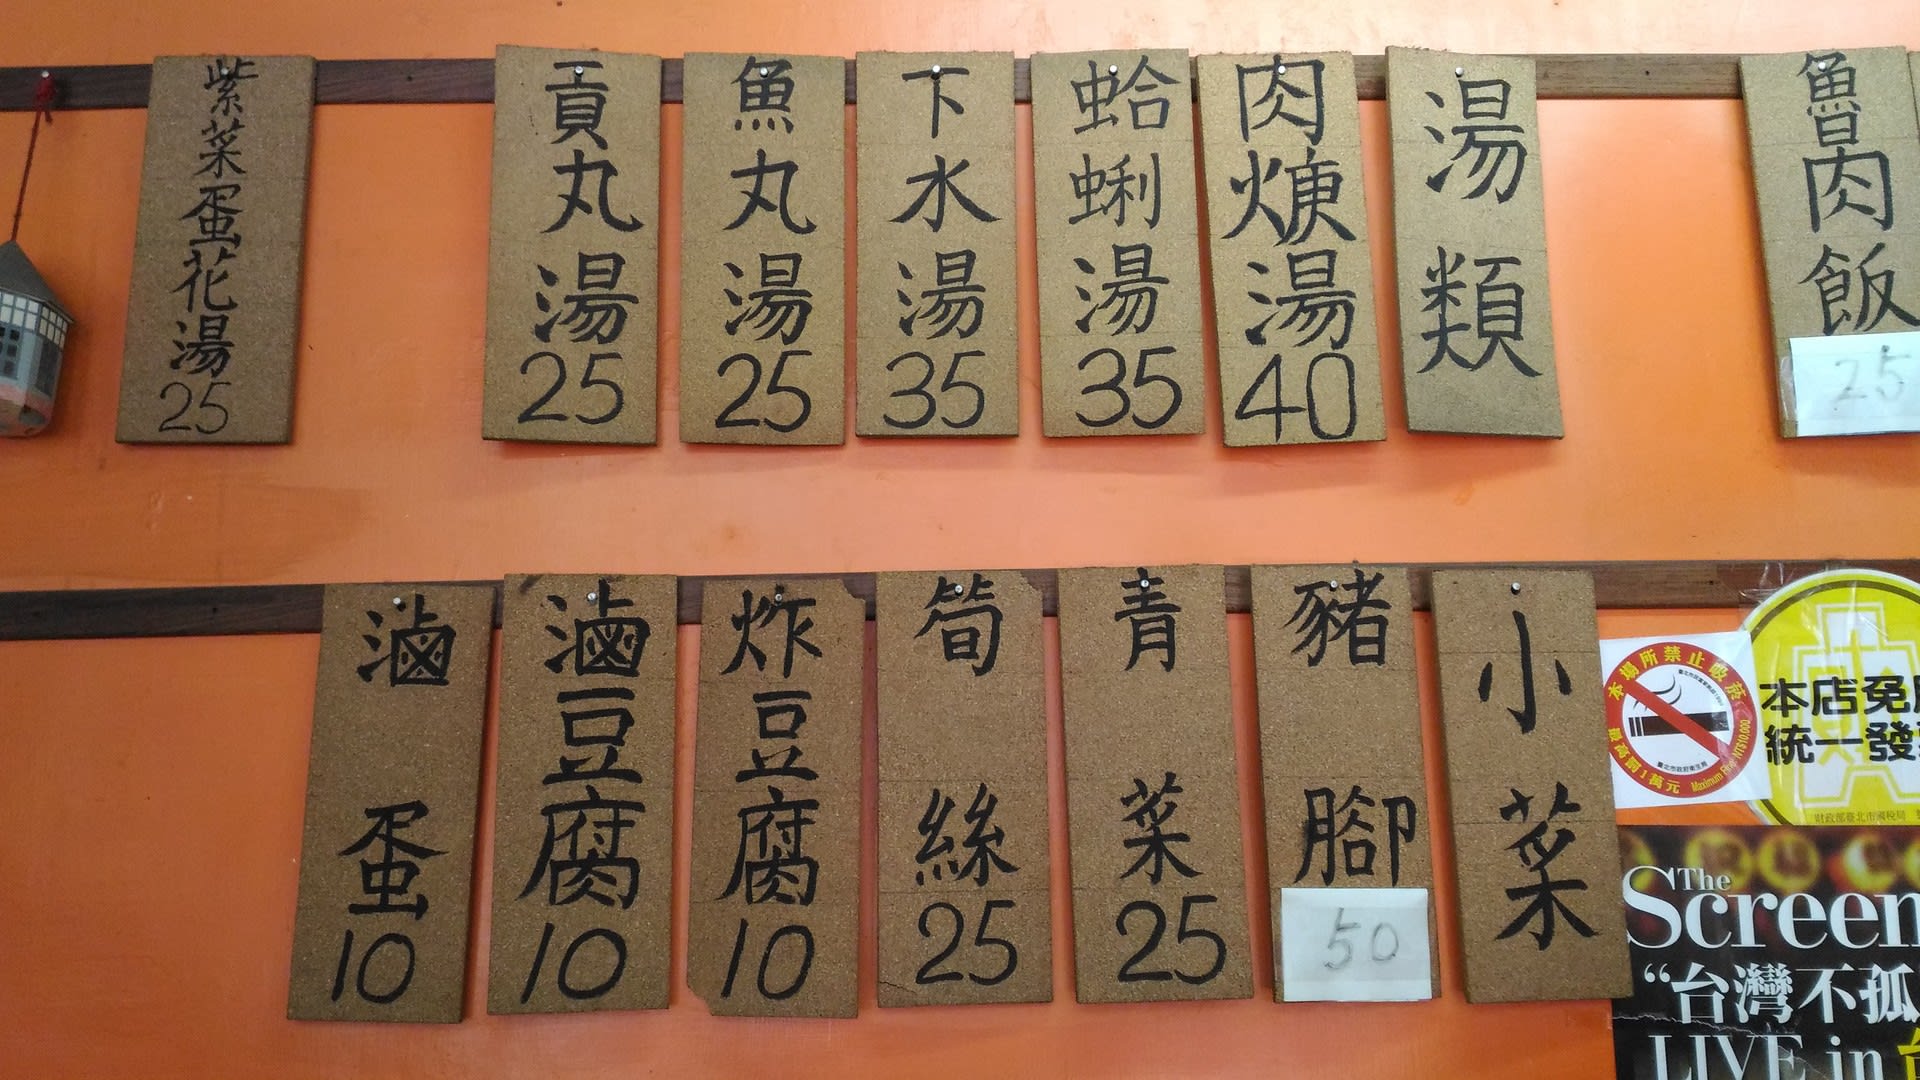 魯肉飯
25
湯類
肉焿湯
40
蛤蜊湯
35
下水湯
35
魚丸湯
25
貢丸湯
25
紫菜蛋花湯
25
小菜
豬腳
50
青菜
25
筍絲
25
炸豆腐
10
滷豆腐
10
滷蛋
10
本場所禁止吸菸
最高罰1萬元
Maximum Fine NT$10,000
本店免
統一發
財政部臺北市國稅局
The
Screen
“台灣不孤
LIVE in